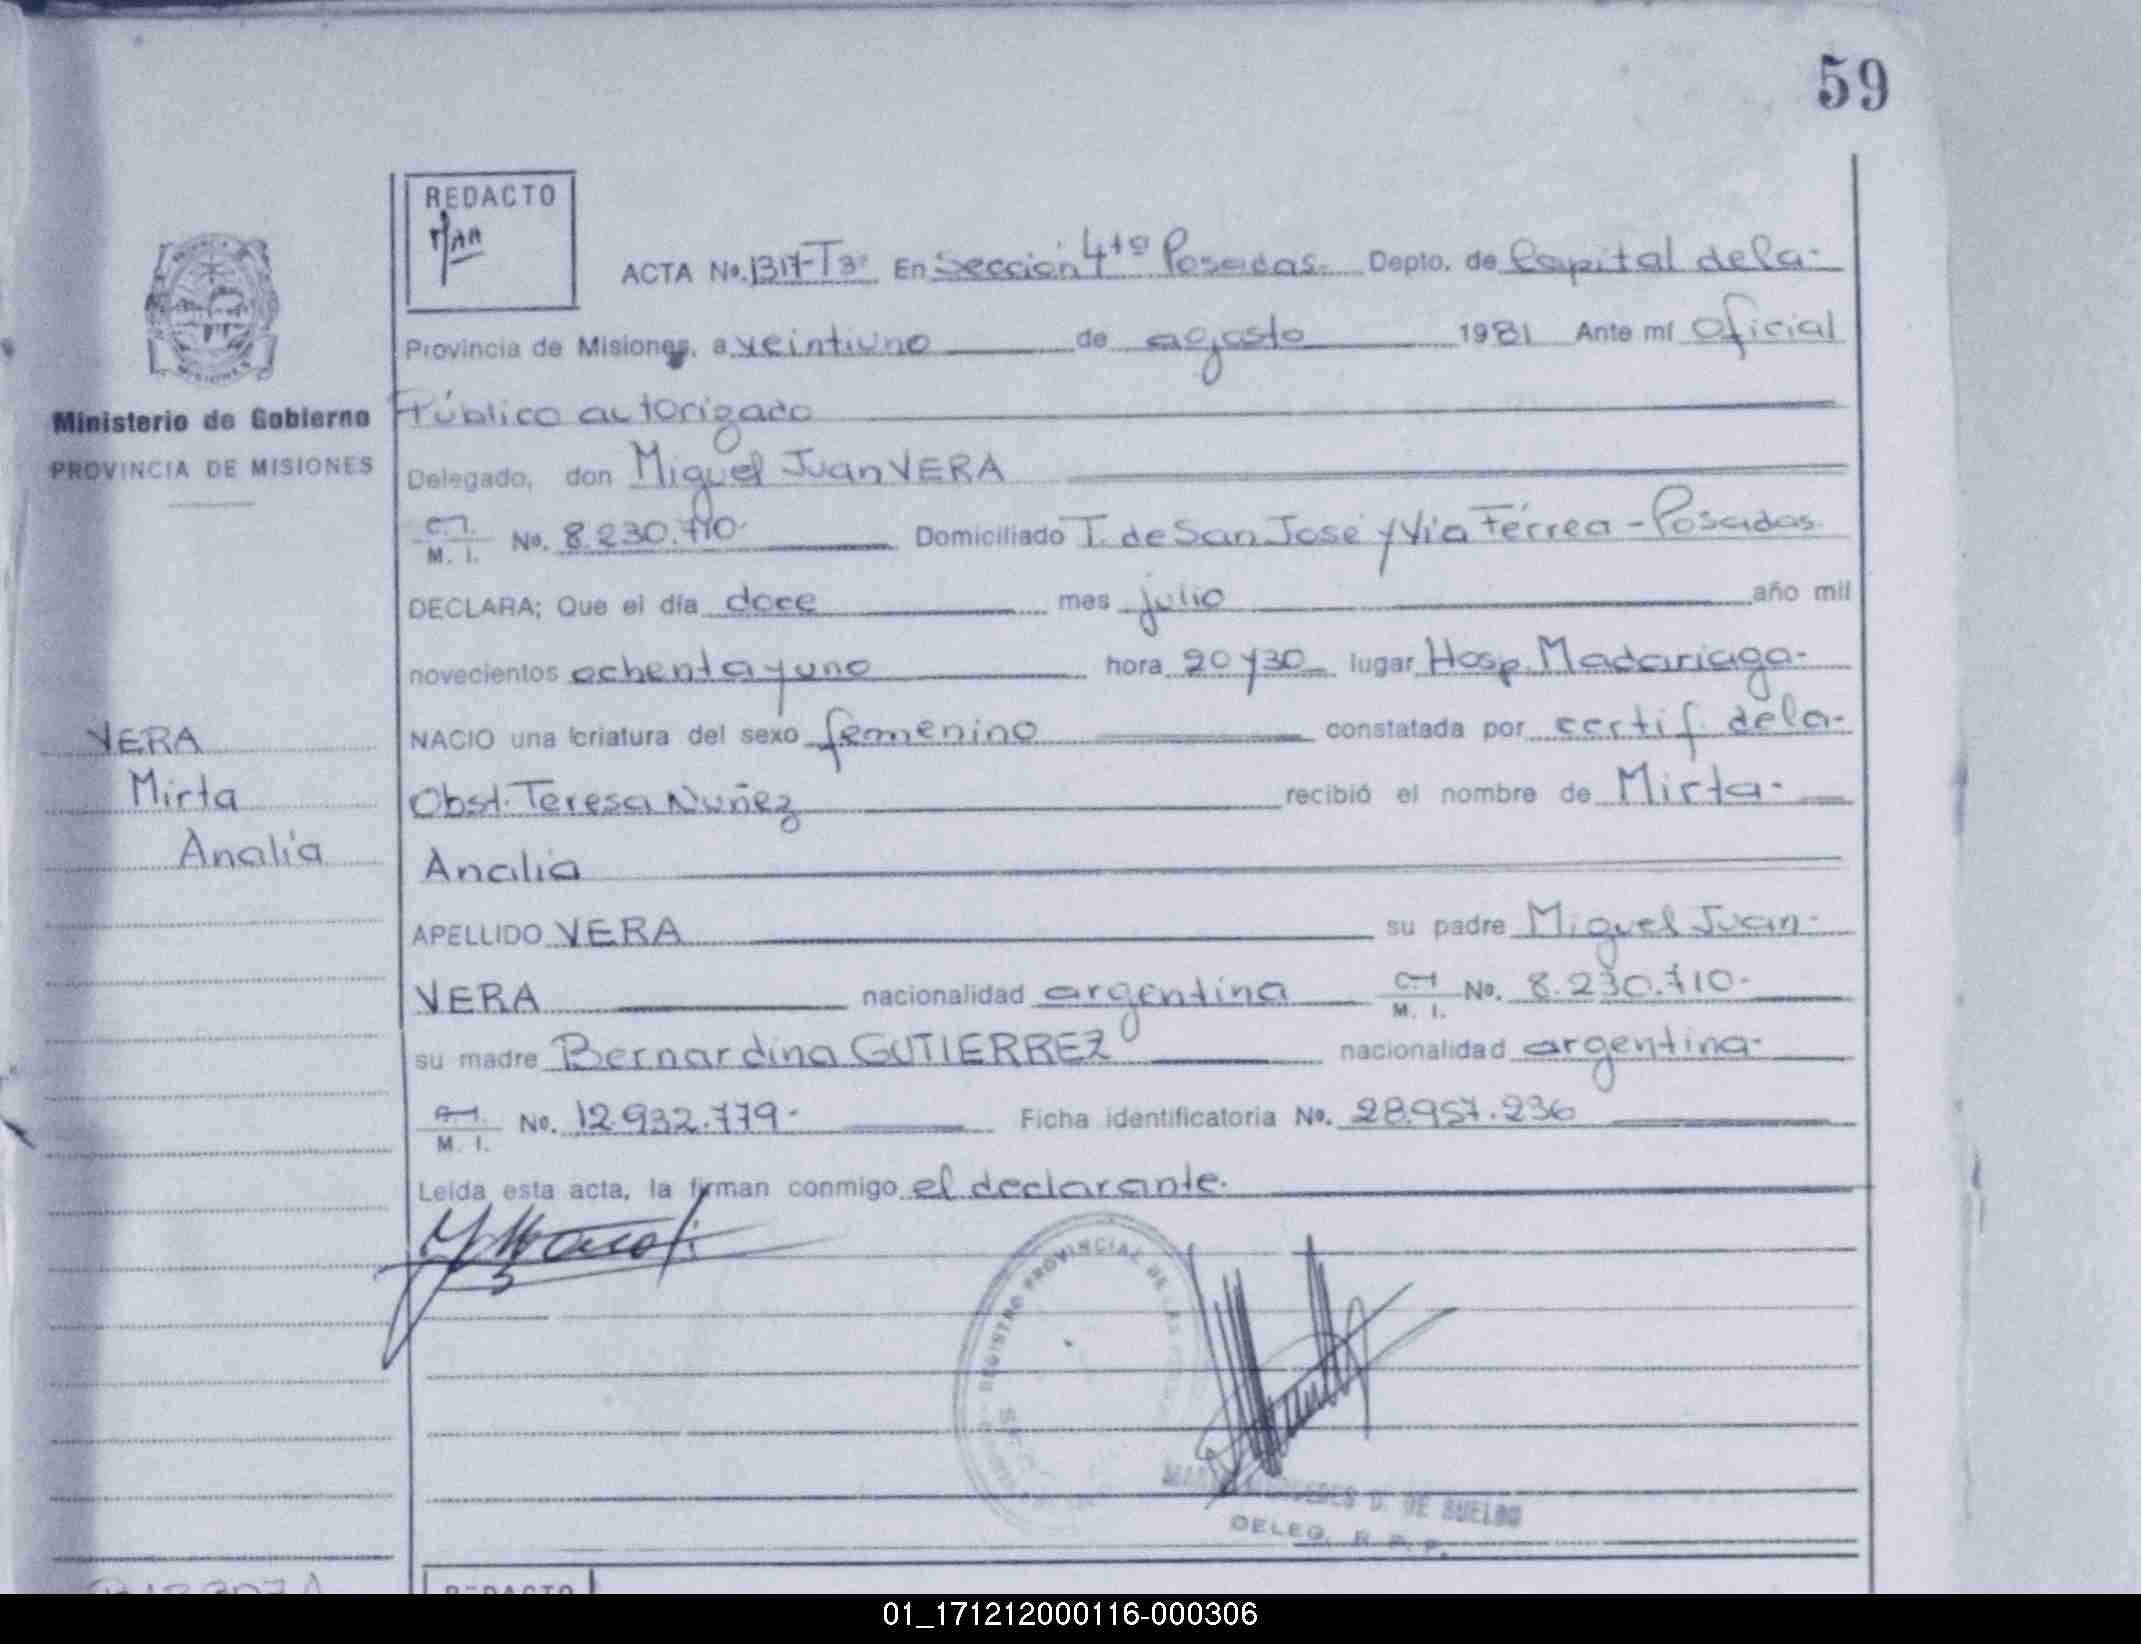 59
REDACTO
ACTA No. 1317-T3º En Sección 4ta Posadas. Depto. de Capital de la-
Provincia de Misiones, a veintiuno de agosto 1981 Ante mí Oficial
Público autorizado
Ministerio de Gobierno
PROVINCIA DE MISIONES
MISIONES
Delegado, don Miguel Juan VERA
C.I.
M. I. No. 8.230.710- Domiciliado T. de San José y Vía Férrea - Posadas.
DECLARA; Que el día doce mes julio año mil
novecientos ochenta y uno hora 20 y 30 lugar Hosp. Madariaga-
VERA
Mirta
Analía
NACIO una criatura del sexo femenino constatada por certif. de la-
Obst. Teresa Nuñez recibió el nombre de Mirta-
Analia
APELLIDO VERA su padre Miguel Juan-
VERA nacionalidad argentina C.I
M. I. No. 8.230.710-
su madre Bernardina GUTIERREZ nacionalidad argentina-
M. I. No. 12.932.779- Ficha identificatoria No. 28.957.236
Leída esta acta, la firman conmigo el declarante.
REGISTRO PROVINCIAL DE LAS
DE SUELDO
DELEG. R. P. P.
REDACTO
01_171212000116-000306